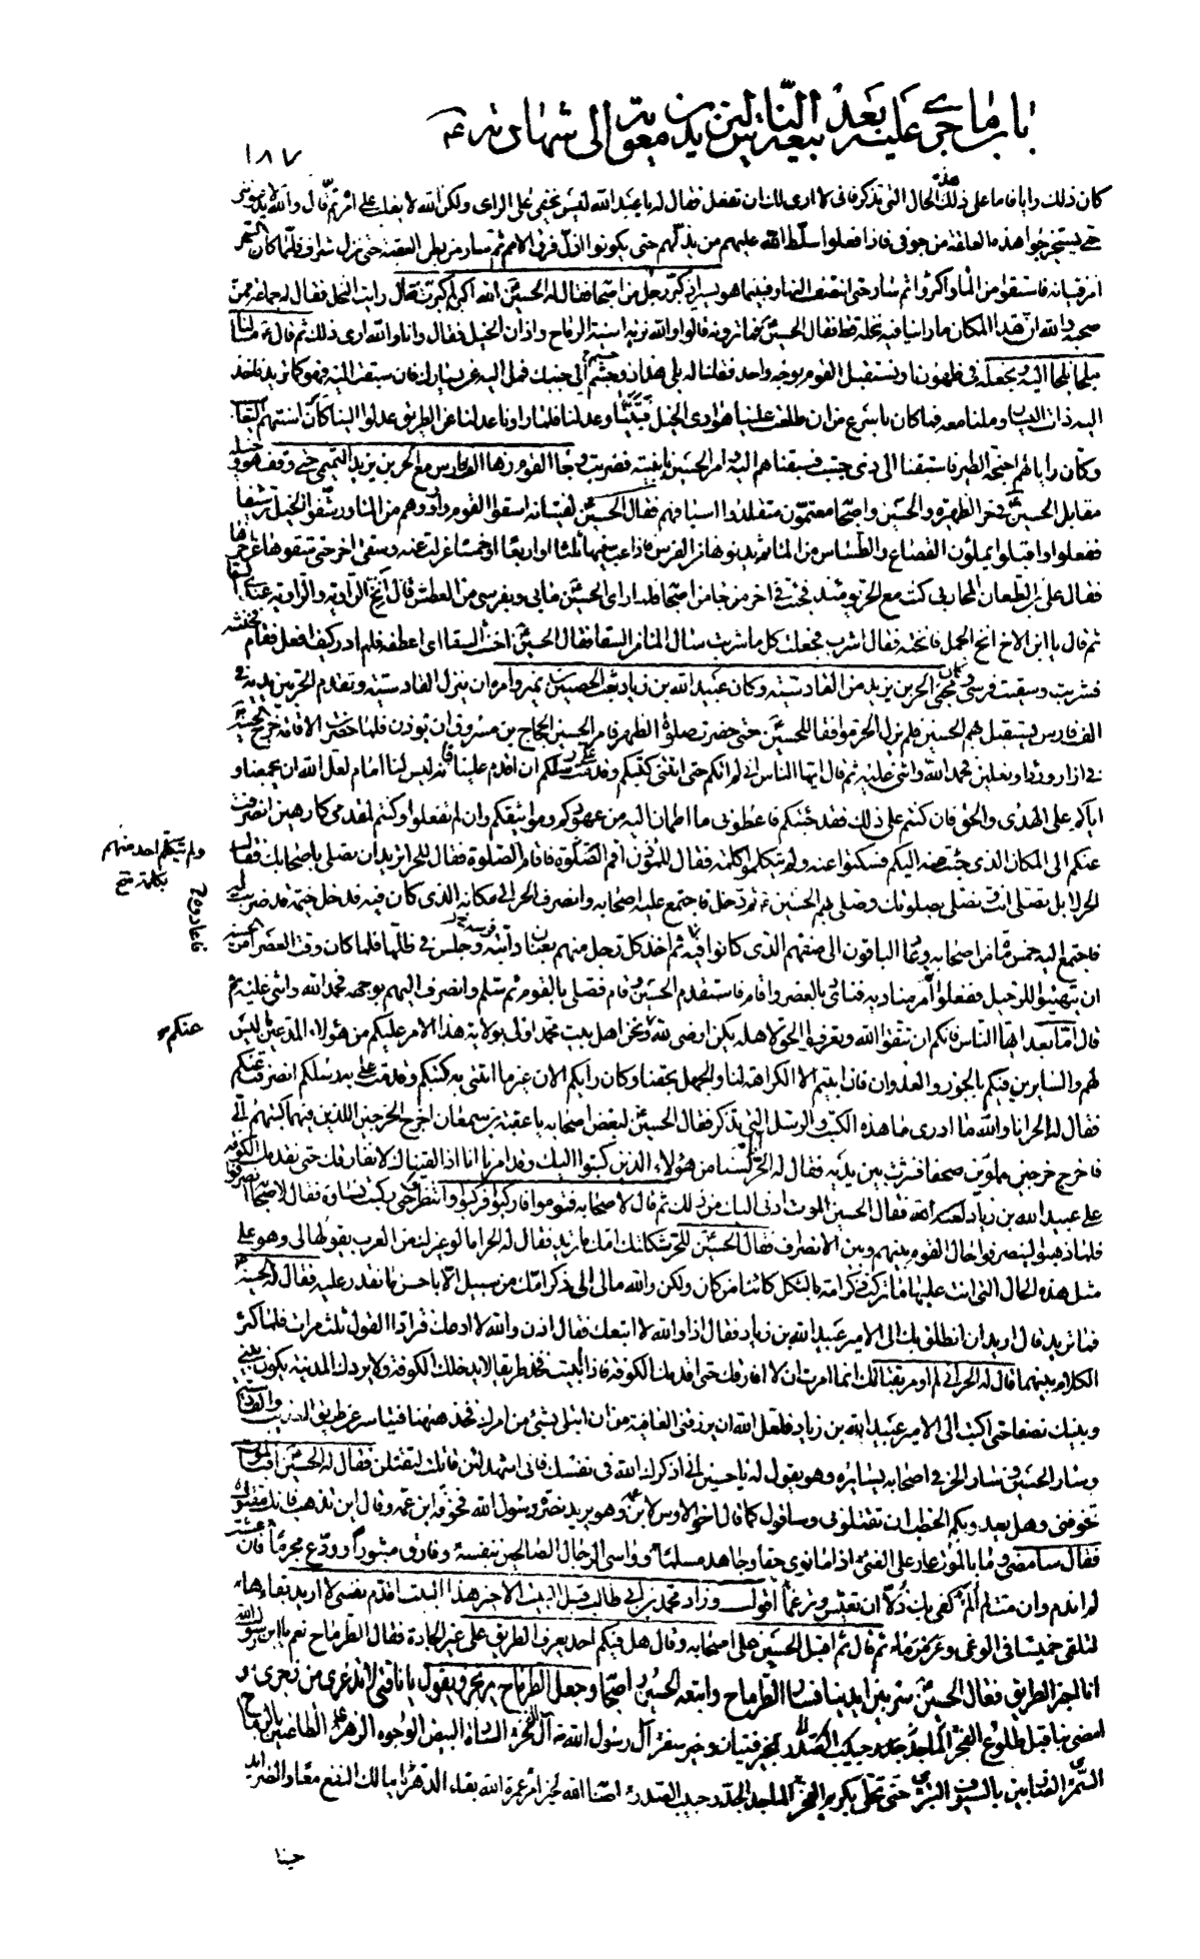 باب ما جرى عليه بعد بيعة الناس ليزيد بن معوية الى شهادته
١٨٧
كان ذلك رايا فاما على هذه الحال التي تذكر فاني لا ارى لك ان تفعل فقال له يا عبد الله ليس يخفى على الراى ولكن الله لا يغلب على امره ثم قال والله لا يدعونني
حتى يستخرجوا هذه العلقة من جوفي فاذا فعلوا سلط الله عليهم من يذلهم حتى يكونوا اذل فرق الامم ثم سار من بطن العقبة حتى نزل شراف فلما كان السحر
امر فتيانه فاستقوا من الماء واكثروا ثم سار حتى انتصف النهار فبينما هو يسير اذ كبر رجل من اصحابه فقال له الحسين الله اكبر لم كبرت فقال رايت النخل فقال له جماعة ممن
صحبه والله ان هذا المكان ما راينا فيه نخلة قط فقال الحسين فما ترونه قالوا والله نراه اسنة الرماح واذان الخيل فقال وانا والله ارى ذلك ثم قال ما لنا
ملجا نلجا اليه ونجعله في ظهورنا ونستقبل القوم بوجه واحد فقلنا له بلى هذا ذو جشم الى جنبك فمل اليه عن يسارك فان سبقت اليه فهو كما تريد فاخذ
اليه ذات اليسار وملنا معه فما كان باسرع من ان طلعت علينا هوادي الخيل فتبيناها وعدلنا فلما راونا عدلنا عن الطريق عدلوا الينا كان اسنتهم اليعاسيب
وكان راياتهم اجنحة الطير فاستبقنا الى ذي جشم فسبقناهم اليه وامر الحسين بابنيته فضربت وجاء القوم زهاء الف فارس مع الحر بن يزيد التميمي حتى وقف هو وخيله
مقابل الحسين في حر الظهيرة والحسين واصحابه معتمون متقلدوا اسيافهم فقال الحسين لفتيانه اسقوا القوم وارووهم من الماء ورشفوا الخيل ترشيفا
ففعلوا واقبلوا يملؤن القصاع والطساس من الماء ثم يدنونها من الفرس فاذا عب فيها ثلثا او اربعا او خمسا عزلت عنه وسقى اخر حتى سقوها عن اخرها
فقال علي بن الطعان المحاربي كنت مع الحر يومئذ فجئت في اخر من جاء من اصحابه فلما راى الحسين ما بي وبفرسي من العطش قال انخ الراوية والراوية عندي السقاء
ثم قال يا ابن الاخ انخ الجمل فانخته فقال اشرب فجعلت كلما شربت سال الماء من السقاء فقال الحسين اخنث السقاء اي اعطفه فلم ادر كيف افعل فقام فخنثه
فشربت وسقيت فرسي وكان مجيء الحر بن يزيد من القادسية وكان عبيد الله بن زياد بعث الحصين بن نمير وامره ان ينزل القادسية وتقدم الحر بين يديه في
الف فارس يستقبل بهم الحسين فلم يزل الحر موافقا للحسين حتى حضرت صلوة الظهر فامر الحسين الحجاج بن مسروق ان يؤذن فلما حضرت الاقامة خرج الحسين
في ازار ورداء ونعلين فحمد الله واثنى عليه ثم قال ايها الناس اني لم اتكم حتى اتتني كتبكم وقدمت على رسلكم ان اقدم علينا فانه ليس لنا امام لعل الله ان يجمعنا و
اياكم على الهدى والحق فان كنتم على ذلك فقد جئتكم فاعطوني ما اطمان اليه من عهودكم ومواثيقكم وان لم تفعلوا وكنتم لمقدمي كارهين انصرفت
عنكم الى المكان الذي جئت منه اليكم فسكتوا عنه ولم يتكلموا كلمة فقال للمؤذن اقم الصلوة فاقام الصلوة فقال للحر اتريد ان تصلي باصحابك فقال
ولم يتكلم احد منهم
بكلمة
الحر لا بل تصلي انت ونصلي بصلوتك وصلى بهم الحسين ثم دخل فاجتمع عليه اصحابه وانصرف الحر الى مكانه الذي كان فيه فدخل خيمة قد ضربت له
فاجتمع اليه خمسمائة من اصحابه وعاد الباقون الى صفهم الذي كانوا فيه ثم اخذ كل رجل منهم بعنان دابته وجلس في ظلها فلما كان وقت العصر امر الحسين
فاعادوه
ان يتهيئوا للرحيل ففعلوا ثم امر مناديه فنادى بالعصر واقام فاستقدم الحسين وقام فصلى بالقوم ثم سلم وانصرف اليهم بوجهه فحمد الله واثنى عليه ثم
قال اما بعد ايها الناس فانكم ان تتقوا الله وتعرفوا الحق لاهله يكن ارضى لله ونحن اهل بيت محمد اولى بولاية هذا الامر عليكم من هؤلاء المدعين ما ليس
عنكم
لهم والسايرين فيكم بالجور والعدوان فان ابيتم الا الكراهة لنا والجهل بحقنا وكان رايكم الان غير ما اتتني به كتبكم وقدمت علي به رسلكم انصرفت عنكم
فقال له الحر انا والله ما ادرى ما هذه الكتب والرسل التي تذكر فقال الحسين لبعض اصحابه يا عقبة بن سمعان اخرج الخرجين اللذين فيهما كتبهم الي
فاخرج خرجين مملوين صحفا فنثرت بين يديه فقال له الحر لسنا من هؤلاء الذين كتبوا اليك وقد امرنا انا اذا لقيناك لا نفارقك حتى نقدمك الكوفة
على عبيد الله بن زياد لعنه الله فقال الحسين الموت ادنى اليك من ذلك ثم قال لاصحابه فقوموا فاركبوا فركبوا وانتظر حتى ركبت نساؤه فقال لاصحابه انصرفوا
فلما ذهبوا لينصرفوا حال القوم بينهم وبين الانصراف فقال الحسين للحر ثكلتك امك ما تريد فقال له الحر اما لو غيرك من العرب يقولها لي وهو على
مثل هذه الحال التي انت عليها ما تركت ذكر امه بالثكل كائنا من كان ولكن والله مالي الى ذكر امك من سبيل الا باحسن ما نقدر عليه فقال له الحسين
فما تريد قال اريد ان انطلق بك الى الامير عبيد الله بن زياد فقال اذا والله لا اتبعك فقال اذن والله لا ادعك فترادا القول ثلث مرات فلما كثر
الكلام بينهما قال له الحر اني لم اومر بقتالك انما امرت ان لا افارقك حتى اقدمك الكوفة فاذا ابيت فخذ طريقا لا يدخلك الكوفة ولا يردك الى المدينة يكون بيني
وبينك نصفا حتى اكتب الى الامير عبيد الله بن زياد فلعل الله ان يرزقني العافية من ان ابتلي بشئ من امرك فخذ ههنا فتياسر عن طريق العذيب والقادسية
وسار الحسين وسار الحر في اصحابه يسايره وهو يقول له يا حسين اني اذكرك الله في نفسك فاني اشهد لئن قاتلت لتقتلن فقال له الحسين افبالموت
تخوفني وهل يعدو بكم الخطب ان تقتلوني وساقول كما قال اخو الاوس لابن عمه وهو يريد نصرة رسول الله فخوفه ابن عمه وقال اين تذهب فانك مقتول
فقال سامضي وما بالموت عار على الفتى اذا ما نوى حقا وجاهد مسلما وواسى الرجال الصالحين بنفسه وفارق مثبورا وودع مجرما فان عشت
لم اندم وان مت لم الم كفى بك ذلا ان تعيش وترغما اقول وزاد محمد بن ابي طالب قبل البيت الاخير هذا البيت اقدم نفسي لا اريد بقاءها
لتلقى خميسا في الوغى وعرمرما ثم قال ثم اقبل الحسين على اصحابه وقال هل فيكم احد يعرف الطريق على غير الجادة فقال الطرماح نعم يا ابن رسول الله
انا اخبر الطريق فقال الحسين سر بين ايدينا فسار الطرماح واتبعه الحسين واصحابه وجعل الطرماح يرتجز ويقول يا ناقتي لا تذعري من زجري و
امضي بنا قبل طلوع الفجر بخير فتيان وخير سفر آل رسول الله آل الفخر السادة البيض الوجوه الزهر الطاعنين بالرماح
السمر الضاربين بالسيوف البتر حتى تحلى بكريم الفخر الماجد الجد رحيب الصدر اصابه الله لخير امر عمره الله بقاء الدهر يا مالك النفع معا والضر ايد
حسينا